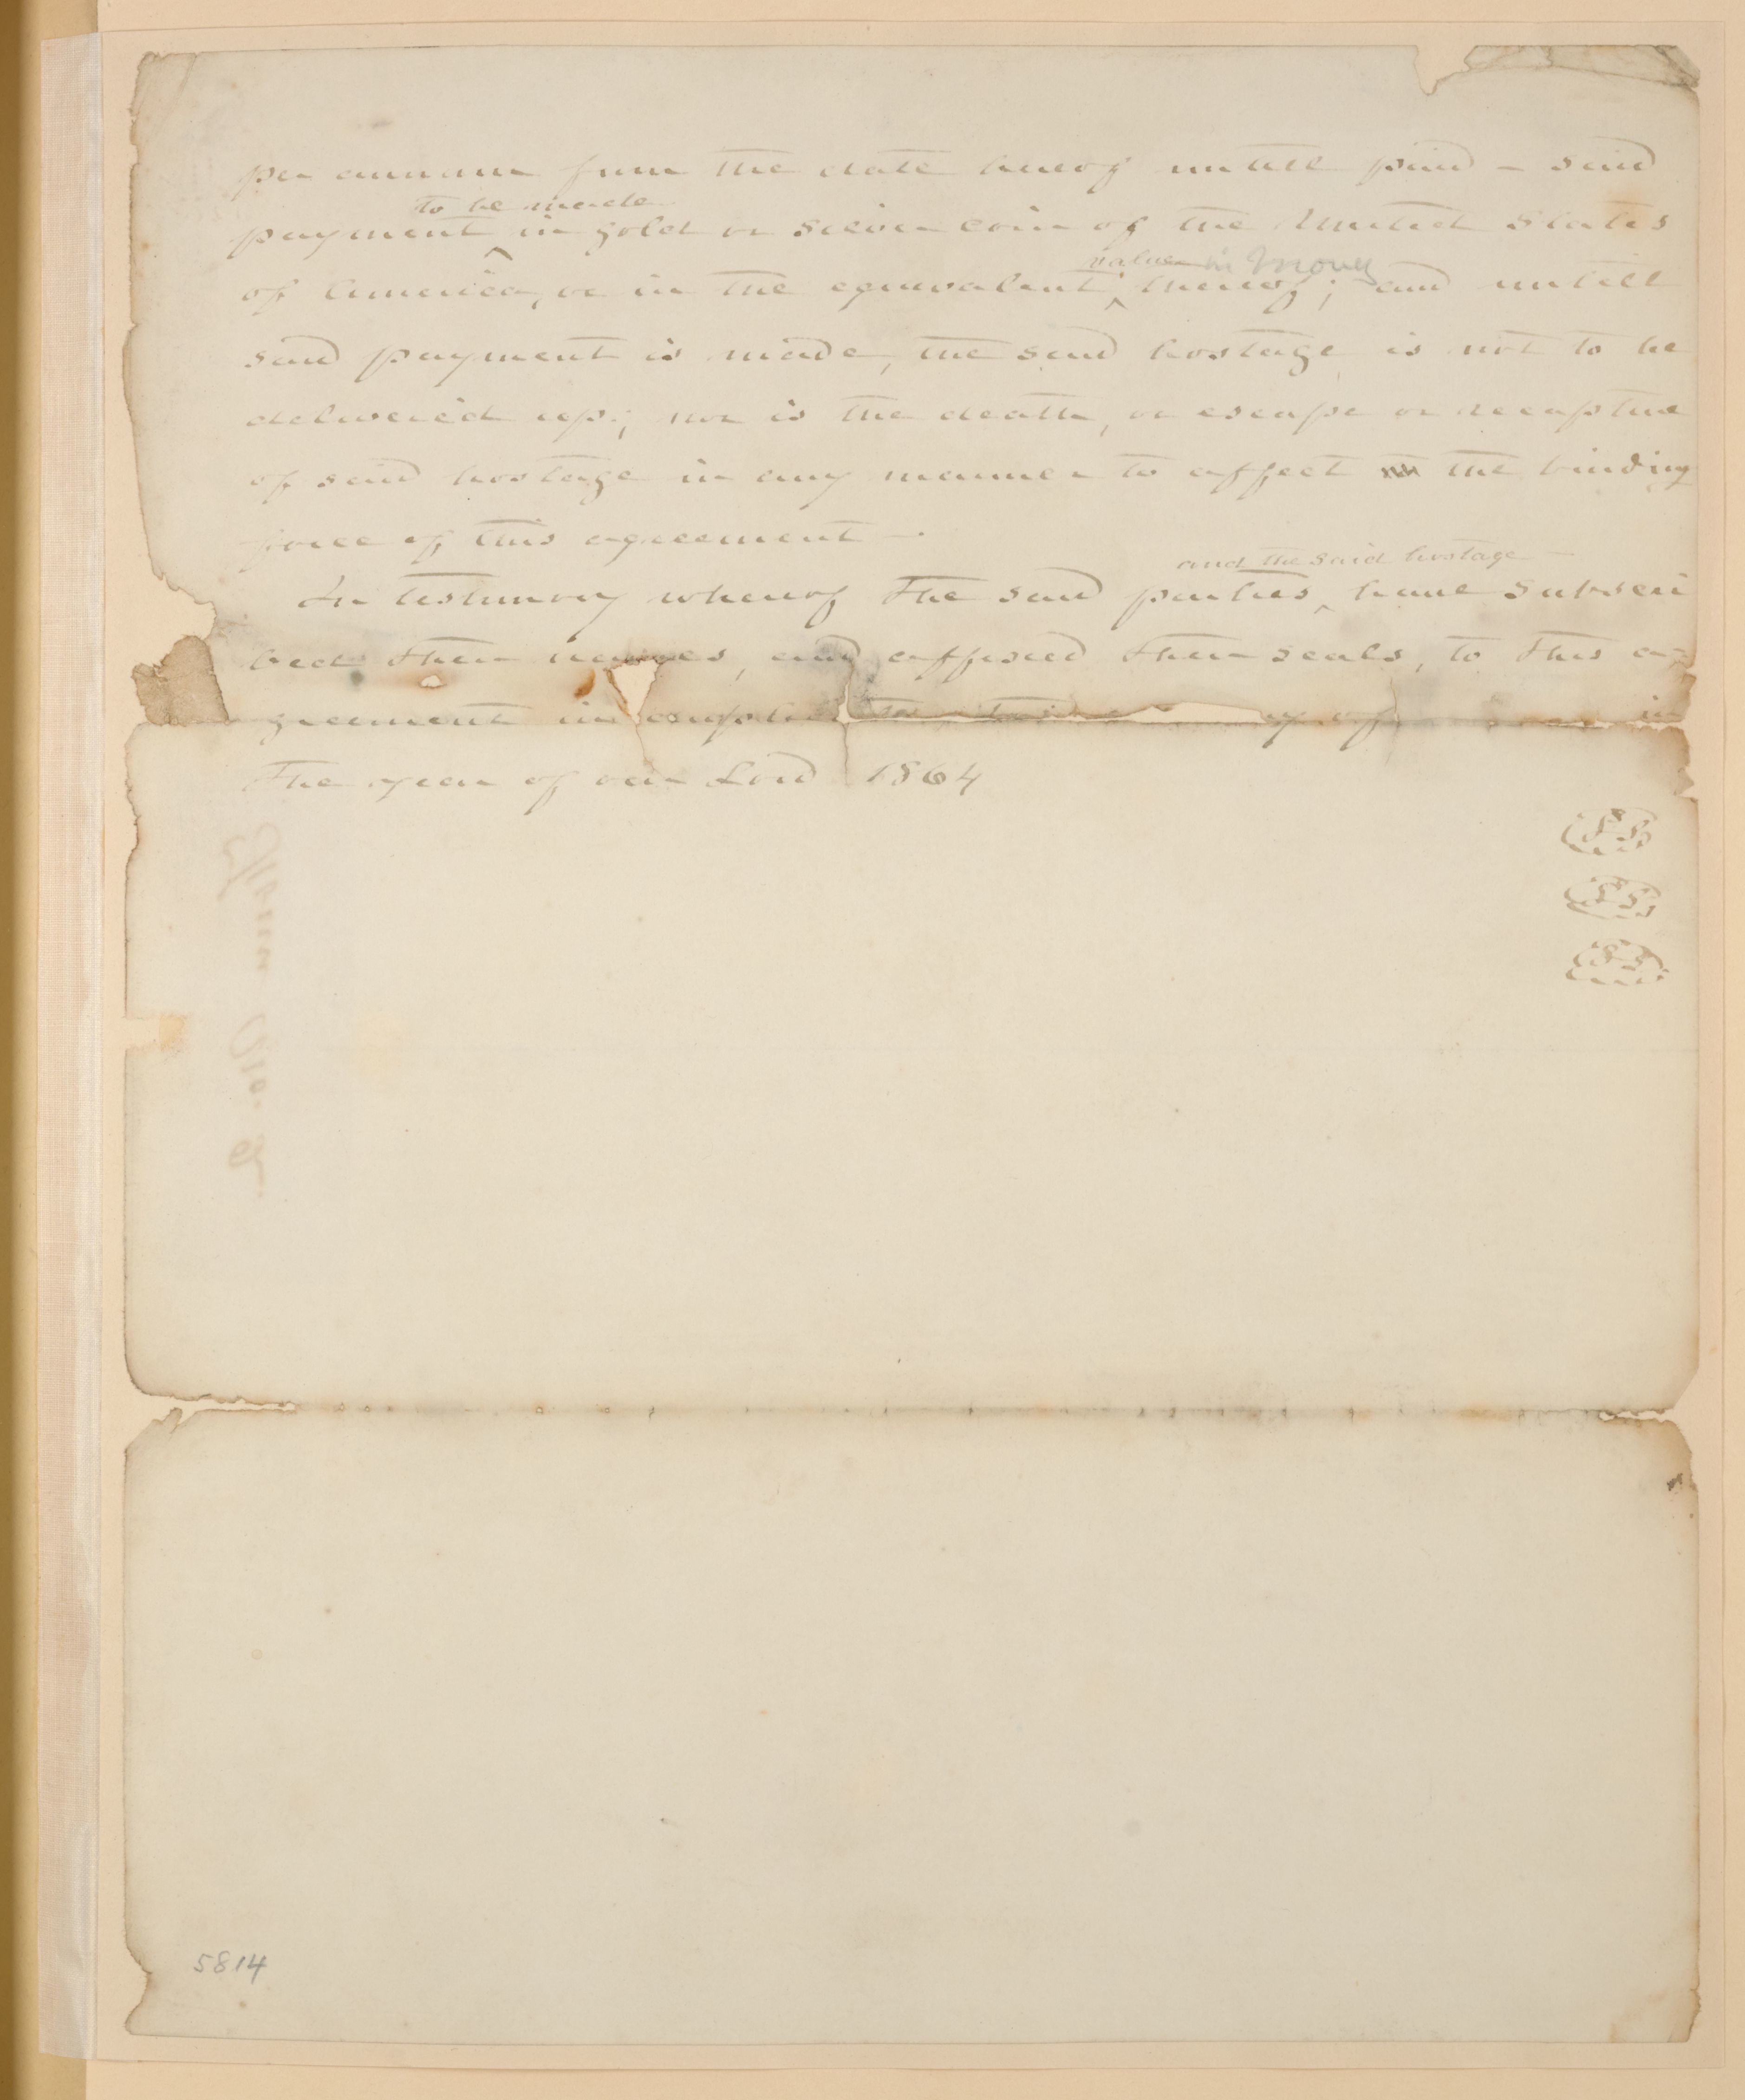 per annum from the date hereof untill paid - said
to be made
payment in gold or silver coin of the United States
value in money
of America, or in the equivalent thereof; and untill
said payment is made, the said hostage is not to be
delivered up; nor is the death, or escape or recapture
of said hostage in any manner to affect the binding
force of this agreement -.
and the said hostage -
In testimony whereof the said parties, have subscri
bed their names, and affixed their seals, to this a-
greement in of in
the year of our Lord 1864
LS
LS
LS
5814